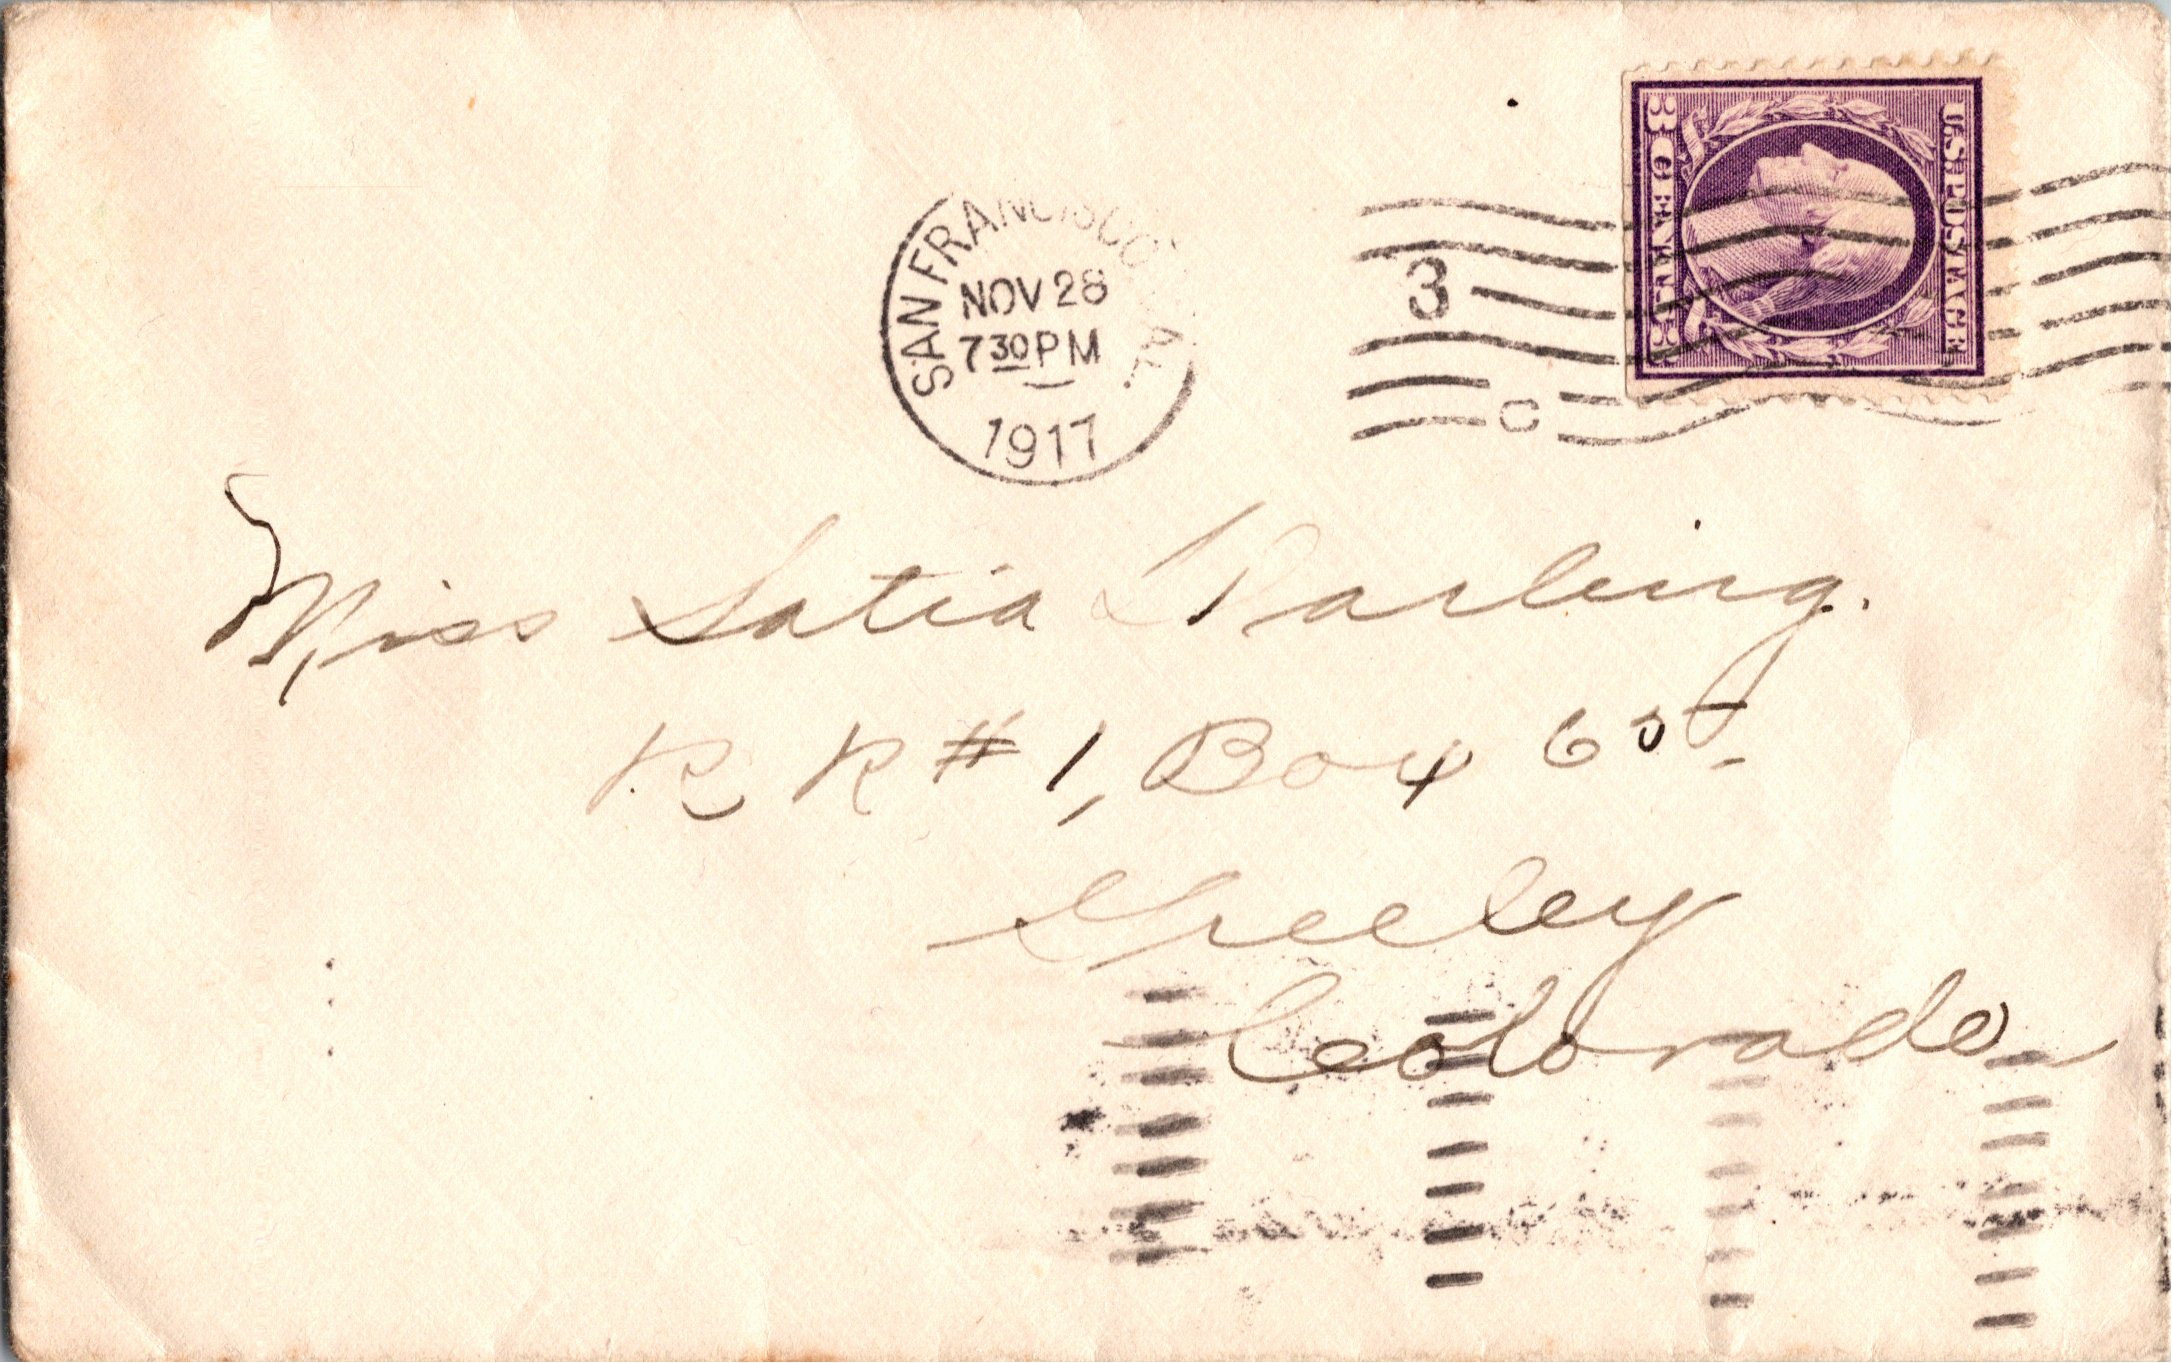 U.S. POSTAGE
3 CENTS 3
SAN FRANCISCO CAL.
NOV 28
7 30 PM
1917
3
C
Miss Satia Darling.
R R # 1, Box 65.
Greeley
Colorado